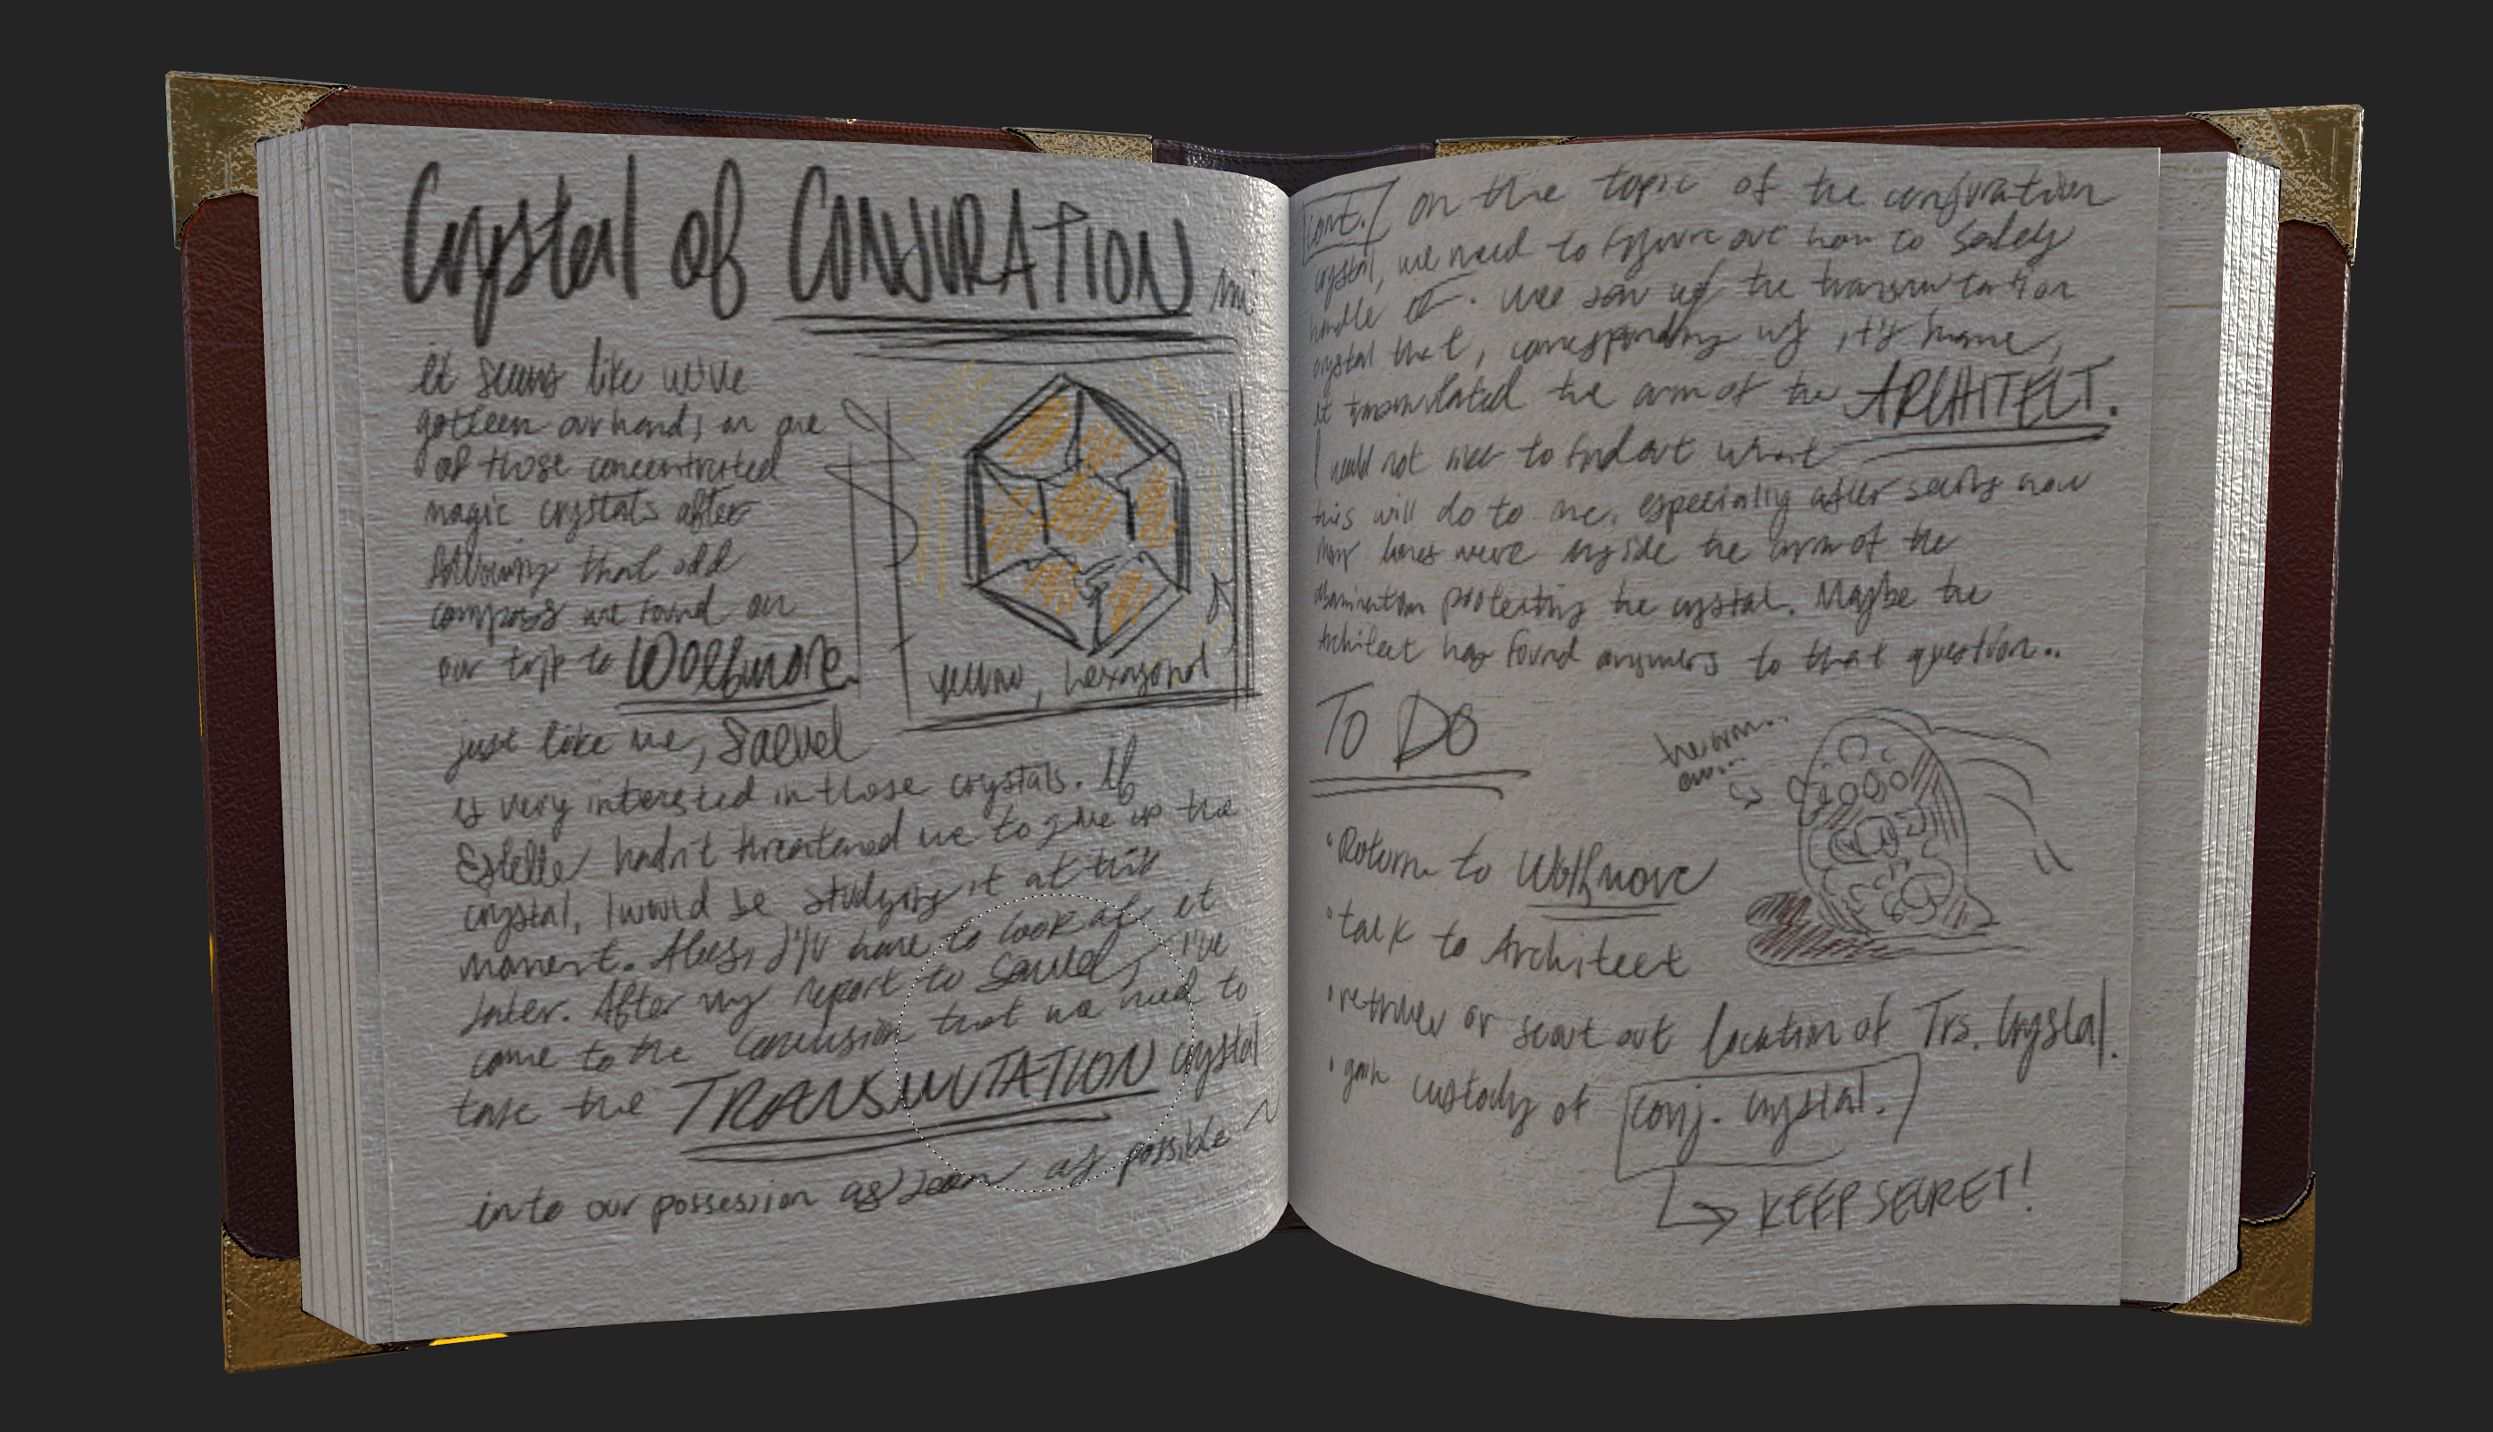 Crystal of CONJURATION
it seems like we've
gotteen our hands on one
of those concentrated
magic crystals after
following that odd
compass we found on
our trip to Wolfmore.
yellow, hexagonal
just like me, Saevel
is very interested in those crystals. If
Estelle hadn't threatened me to give up the
crystal, I would be studying it at this
moment. Alas, I'll have to look at it
later. After my report to Saevel, I've
come to the conclusion that we need to
take the TRANSMUTATION crystal
into our possession as soon as possible
cont. on the topic of the conjuration
crystal, we need to figure out how to safely
handle it. We saw w/ the transmutation
crystal that, corresponding w/ it's name,
it transmutated the arm of the ARCHITECT.
I would not like to find out what
this will do to me, especially after seeing how
many bones were inside the arm of the
abomination protecting the crystal. Maybe the
Architect has found answers to that question..
TO DO
the arm...
ew...
• Return to Wolfmore
• talk to Architect
• retrieve or scout out location of Trs. Crystal.
• gain custody of conj. crystal.
↳ KEEP SECRET!